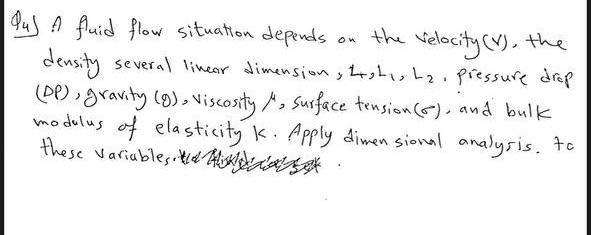 Qu5 A fluid flow situation depends on the velocity (V), the
density several linear dimension, L, L1, L2, pressure drop
(DP), gravity (g), viscosity μ, surface tension (σ), and bulk
modulus of elasticity K. Apply dimensional analysis. to
these variables.